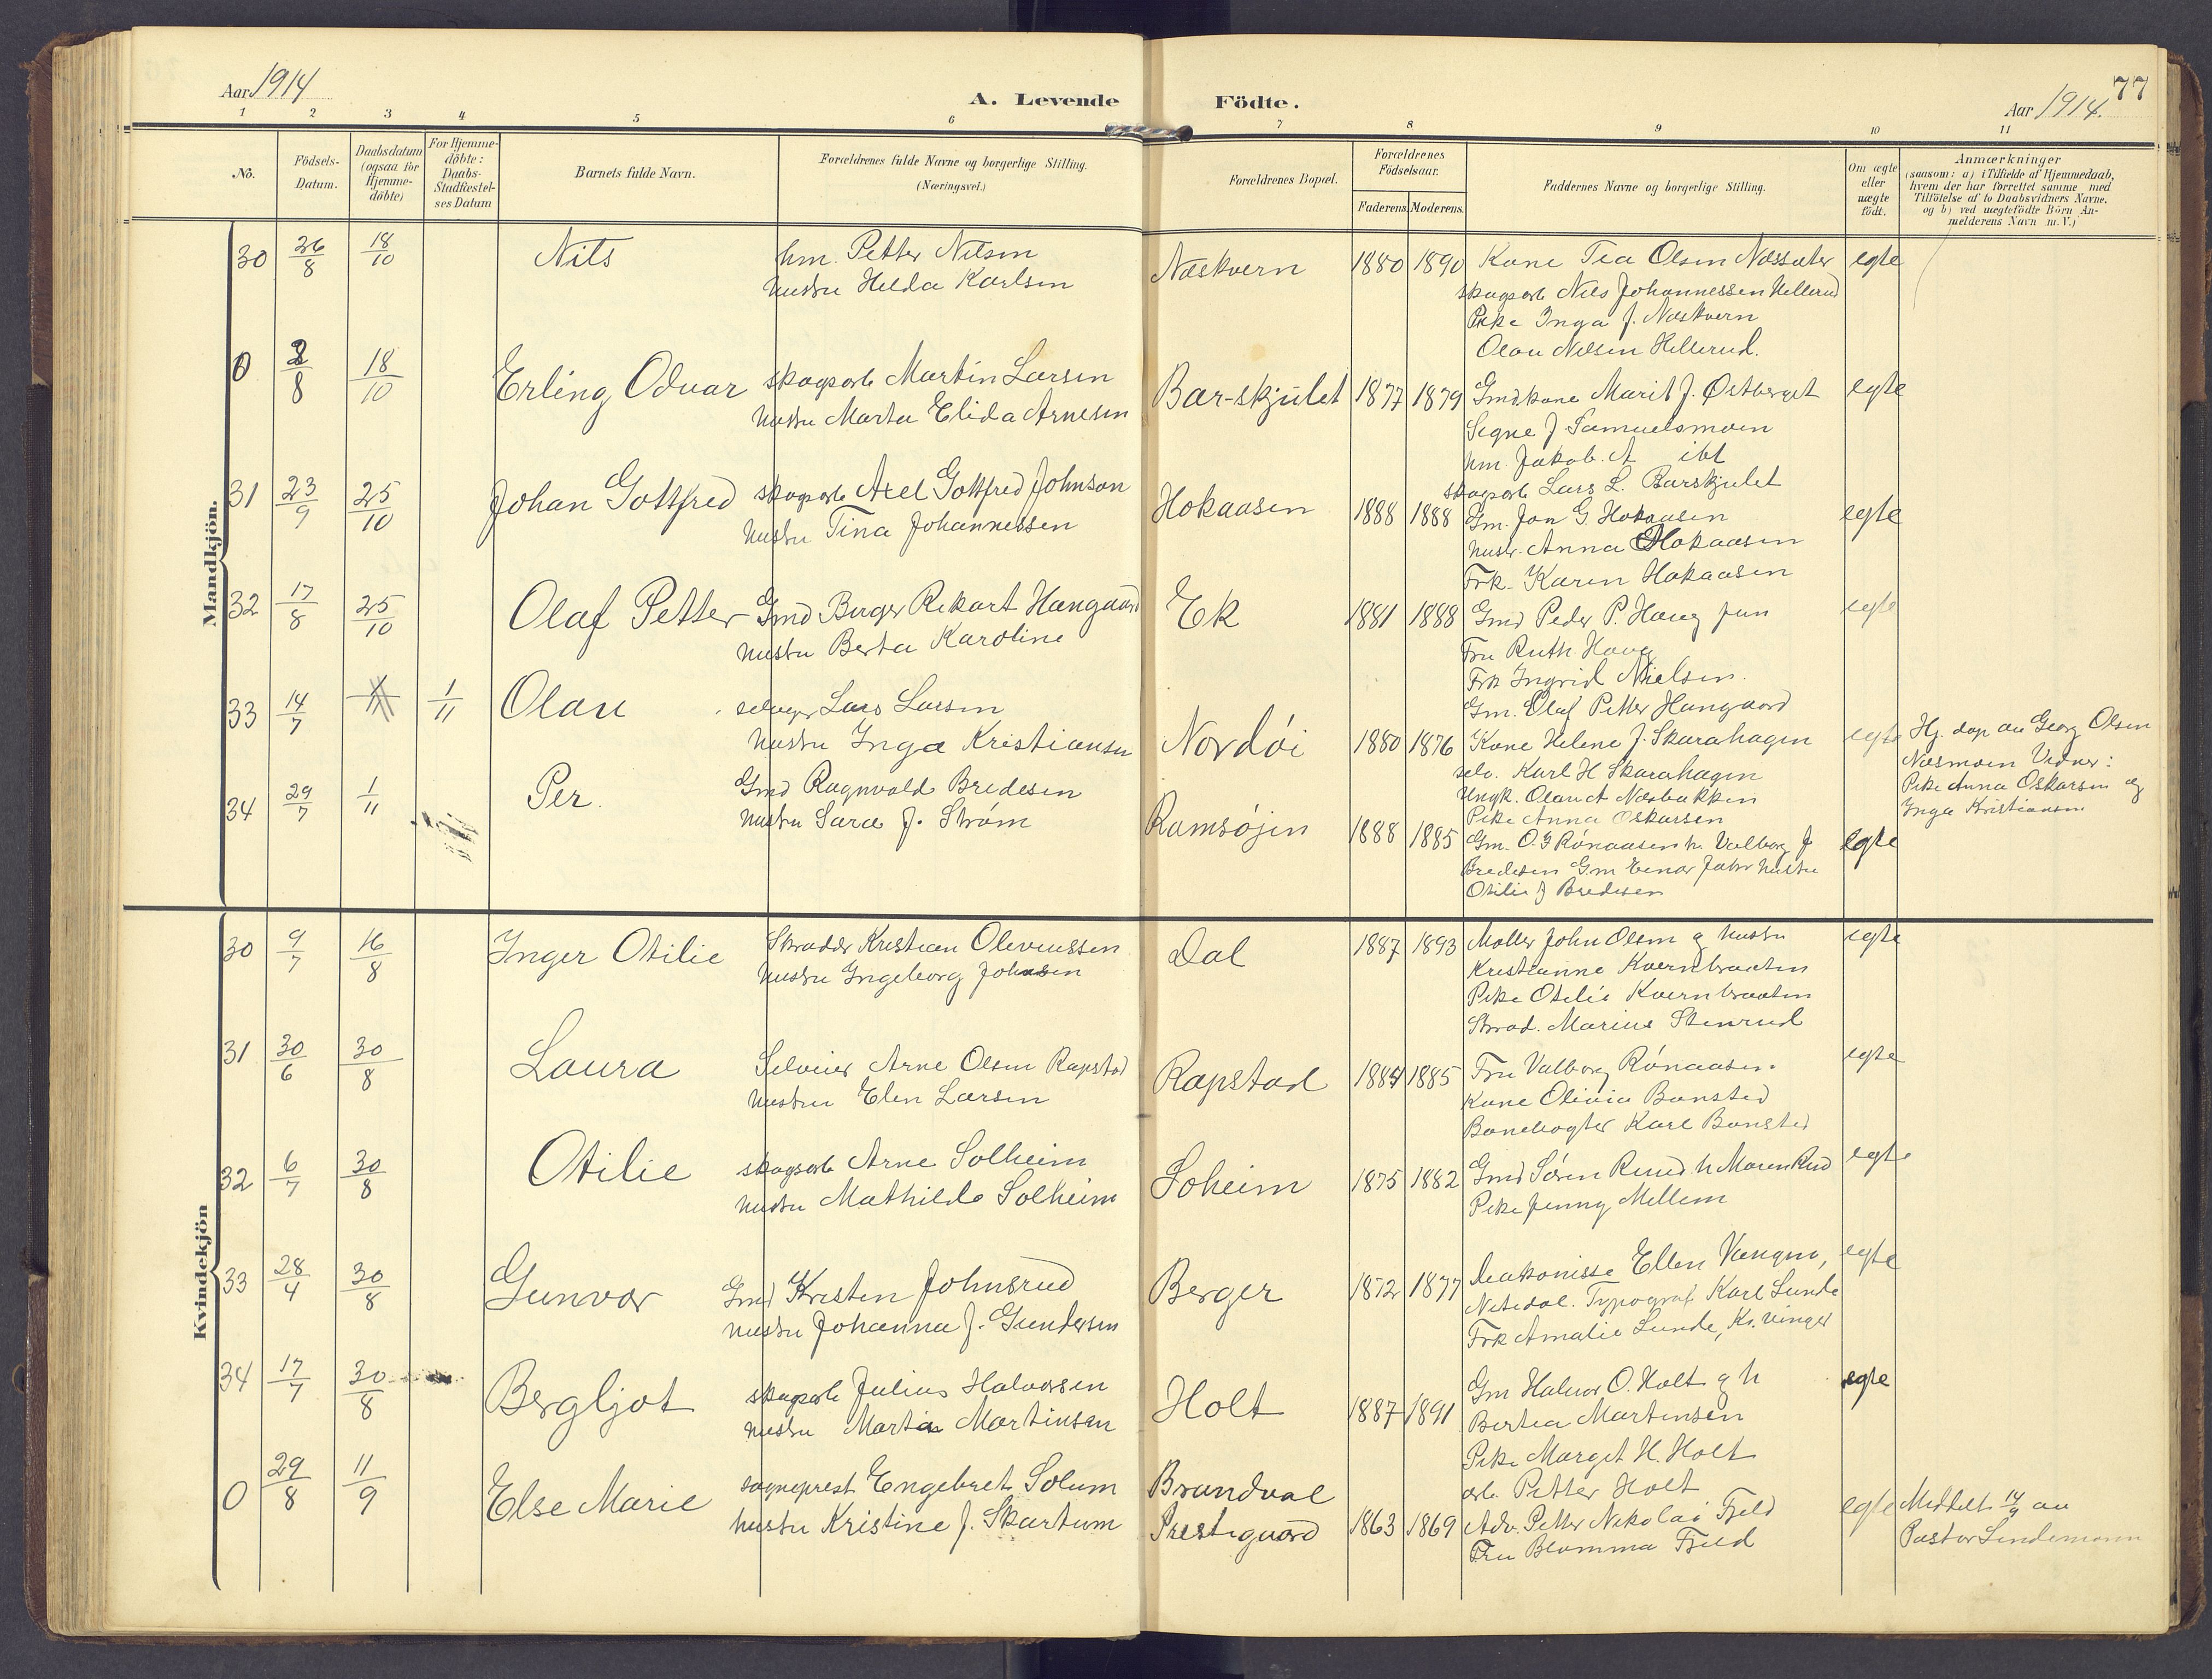 Aar 1914
A. Levende Födte.
Aar 1914.
77
1 2 3 4 5 6 7 8 9 10 11
No.
Födsels-Datum.
Daabsdatum (ogsaa for Hjemmedöbte)
For Hjemmedöbte: Daabs-Stadfæstelses Datum
Barnets fulde Navn.
Forældrenes fulde Navne og borgerlige Stilling.
(Næringsvei.)
Forældrenes Bopæl.
Forældrenes Födselsaar.
Faderens. Moderens.
Faddernes Navne og borgerlige Stilling.
Om ægte eller uægte födt.
Anmærkninger
(saasom: a) i Tilfælde af Hjemmedaab,
hvem der har forrettet samme med
Tilföielse af to Daabsvidners Navne.
og b) ved uægtefödte Börn An-
melderens Navn m. V.)
Mandkjön.
30 26/8 18/10 Nils hm. Petter Nilsen Næskvern 1880 1890 Kone Tea Olsen Næssæter egte
hustru Helda Karlsen skogsarb Nils Johannessen Hellerud
Pike Inga J. Næskvern
Olav Nilsen Hellerud.
0 2/8 18/10 Erling Odvar skogsarb Martin Larsen Bar-skjulet 1877 1879 Gmdkone Marit J. Østberget egte
hustru Marta Elida Arnesen Signe J Samuelsmoen
hm. Jakob. A ibl
skogsarb Lars L. Barskjulet
31 23/9 25/10 Johan Gottfred skogsarb Axel Gottfred Johnson Hokaasen 1888 1888 Gm. Jon G. Hokaasen egte
hustru Tina Johannessen hustr. Anna Hokaasen
Frk. Karen Hokaasen
32 17/8 25/10 Olaf Petter Gmd Birger Rikart Haugaard Ek 1881 1888 Gmd Peder P. Haug jun egte
hustru Berta Karoline Fru Ruth Haug
Frk Ingrid Nielsen.
Gm. Olaf Petter Haugaard
33 14/7 1/11 Olav selveger Lars Larsen Nordöi 1880 1876 Kone Helene J. Skarahagen egte Hj. døp av Georg Olsen
hustru Inga Kristiansen selv. Karl H Skarahagen Næsmoen Vidner:
Ungk. Olav A Næsbakken Pike Anna Oskarsen og
Pike Anna Oskarsen Inga Kristiansen
34 29/7 1/11 Per. Gmd Ragnvald Bredesen Ramsøjen 1888 1885 Gm. O. G Rønaasen h. Valborg J egte
hustru Sara J. Strøm Bredesen Gm Einar Jahr hustru
Otilie J Bredesen
Kvindekjön
30 9/7 16/8 Inger Otilie Skrædder Kristian Oliveussen Dal 1887 1893 Møller John Olsen og hustru egte
hustru Ingeborg Johnsen Kristianne Kvernbraaten
Pike Otilie Kvernbraaten
Skræd. Marius Stenrud
31 30/6 30/8 Laura Selveier Arne Olsen Rapstad Rapstad 1884 1885 Fru Valborg Rönaasen. egte
hustru Elen Larsen Kone Olivia Bansted
Banevogter Karl Bansted
32 6/7 30/8 Otilie skogsarb Arne Solheim Soheim 1875 1882 Gmd Sören Ruud h Maren Rud egte
hustru Mathilde Solheim Pike Jenny Mellem
33 28/4 30/8 Gunvor Gmd Kristen Johnsrud Berger 1872 1877 Diakonisse Ellen Vangmo, egte
hustru Johanna J. Gundersen Nitedal. Typograf Karl Lunde
Frk Amalie Lunde, Kr. vinger
34 17/7 30/8 Bergljot skogsarb Julius Halvorsen Holt 1887 1891 Gm Halvor O. Holt og h egte
hustru Martin Martinsen Bertea Martensen
Pike Marget H. Holt
arb. Petter Holt
0 29/8 11/9 Else Marie sogneprest Engebret Solum Brandval Prestegaard 1863 1869 Adv. Petter Nikolai Fjeld egte Meddelt 14/9 av
hustru Kristine J. Skartum Fru Blomma Fjeld Pastor Lindemann